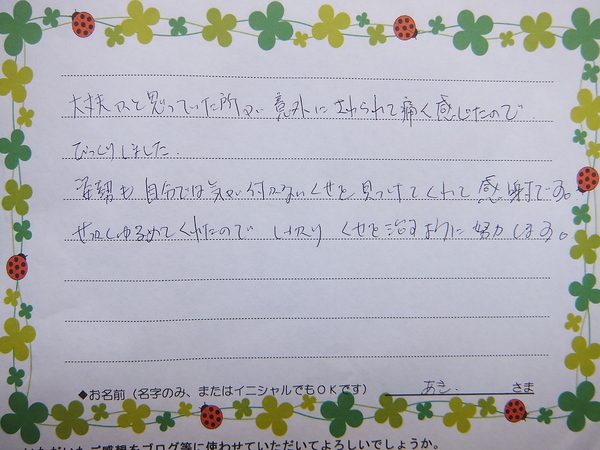 大丈夫だと思っていた所が意外にさわられて痛く感じたので
びっくりしました。
姿勢も自分では気が付かないくせを見つけてくれて感謝です。
せっかくゆるめてくれたので しっかり くせを治るように努力します。
◆お名前（名字のみ、またはイニシャルでもＯＫです） あき. さま
いただいたご感想をブログ等に使わせていただいてよろしいでしょうか。